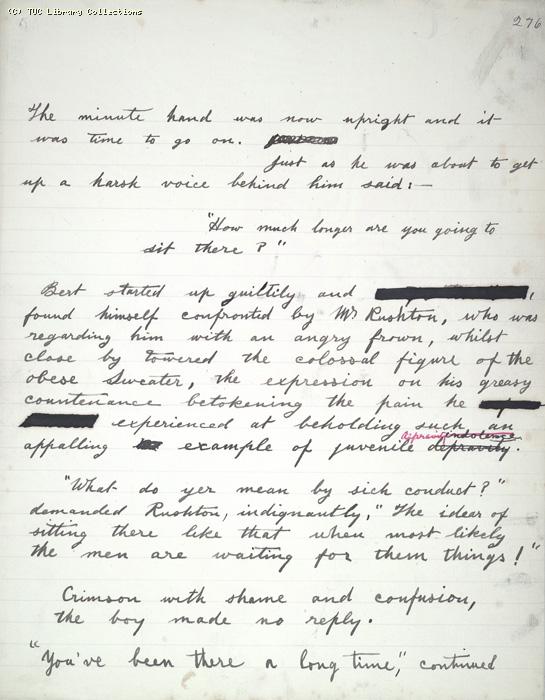 (C) TUC Library Collections
276
The minute hand was now upright and it
was time to go on.
Just as he was about to get
up a harsh voice behind him said:—
"How much longer are you going to
sit there?"
Bert started up guiltily and
found himself confronted by Mr Rushton, who was
regarding him with an angry frown, whilst
close by towered the colossal figure of the
obese Sweater, the expression on his greasy
countenance betokening the pain he
experienced at beholding such an
depravity indolence
appalling example of juvenile depravity.
"What do yer mean by sich conduct?"
demanded Rushton, indignantly, "The idear of
sitting there like that when most likely
the men are waiting for them things!"
Crimson with shame and confusion,
the boy made no reply.
"You've been there a long time," continued